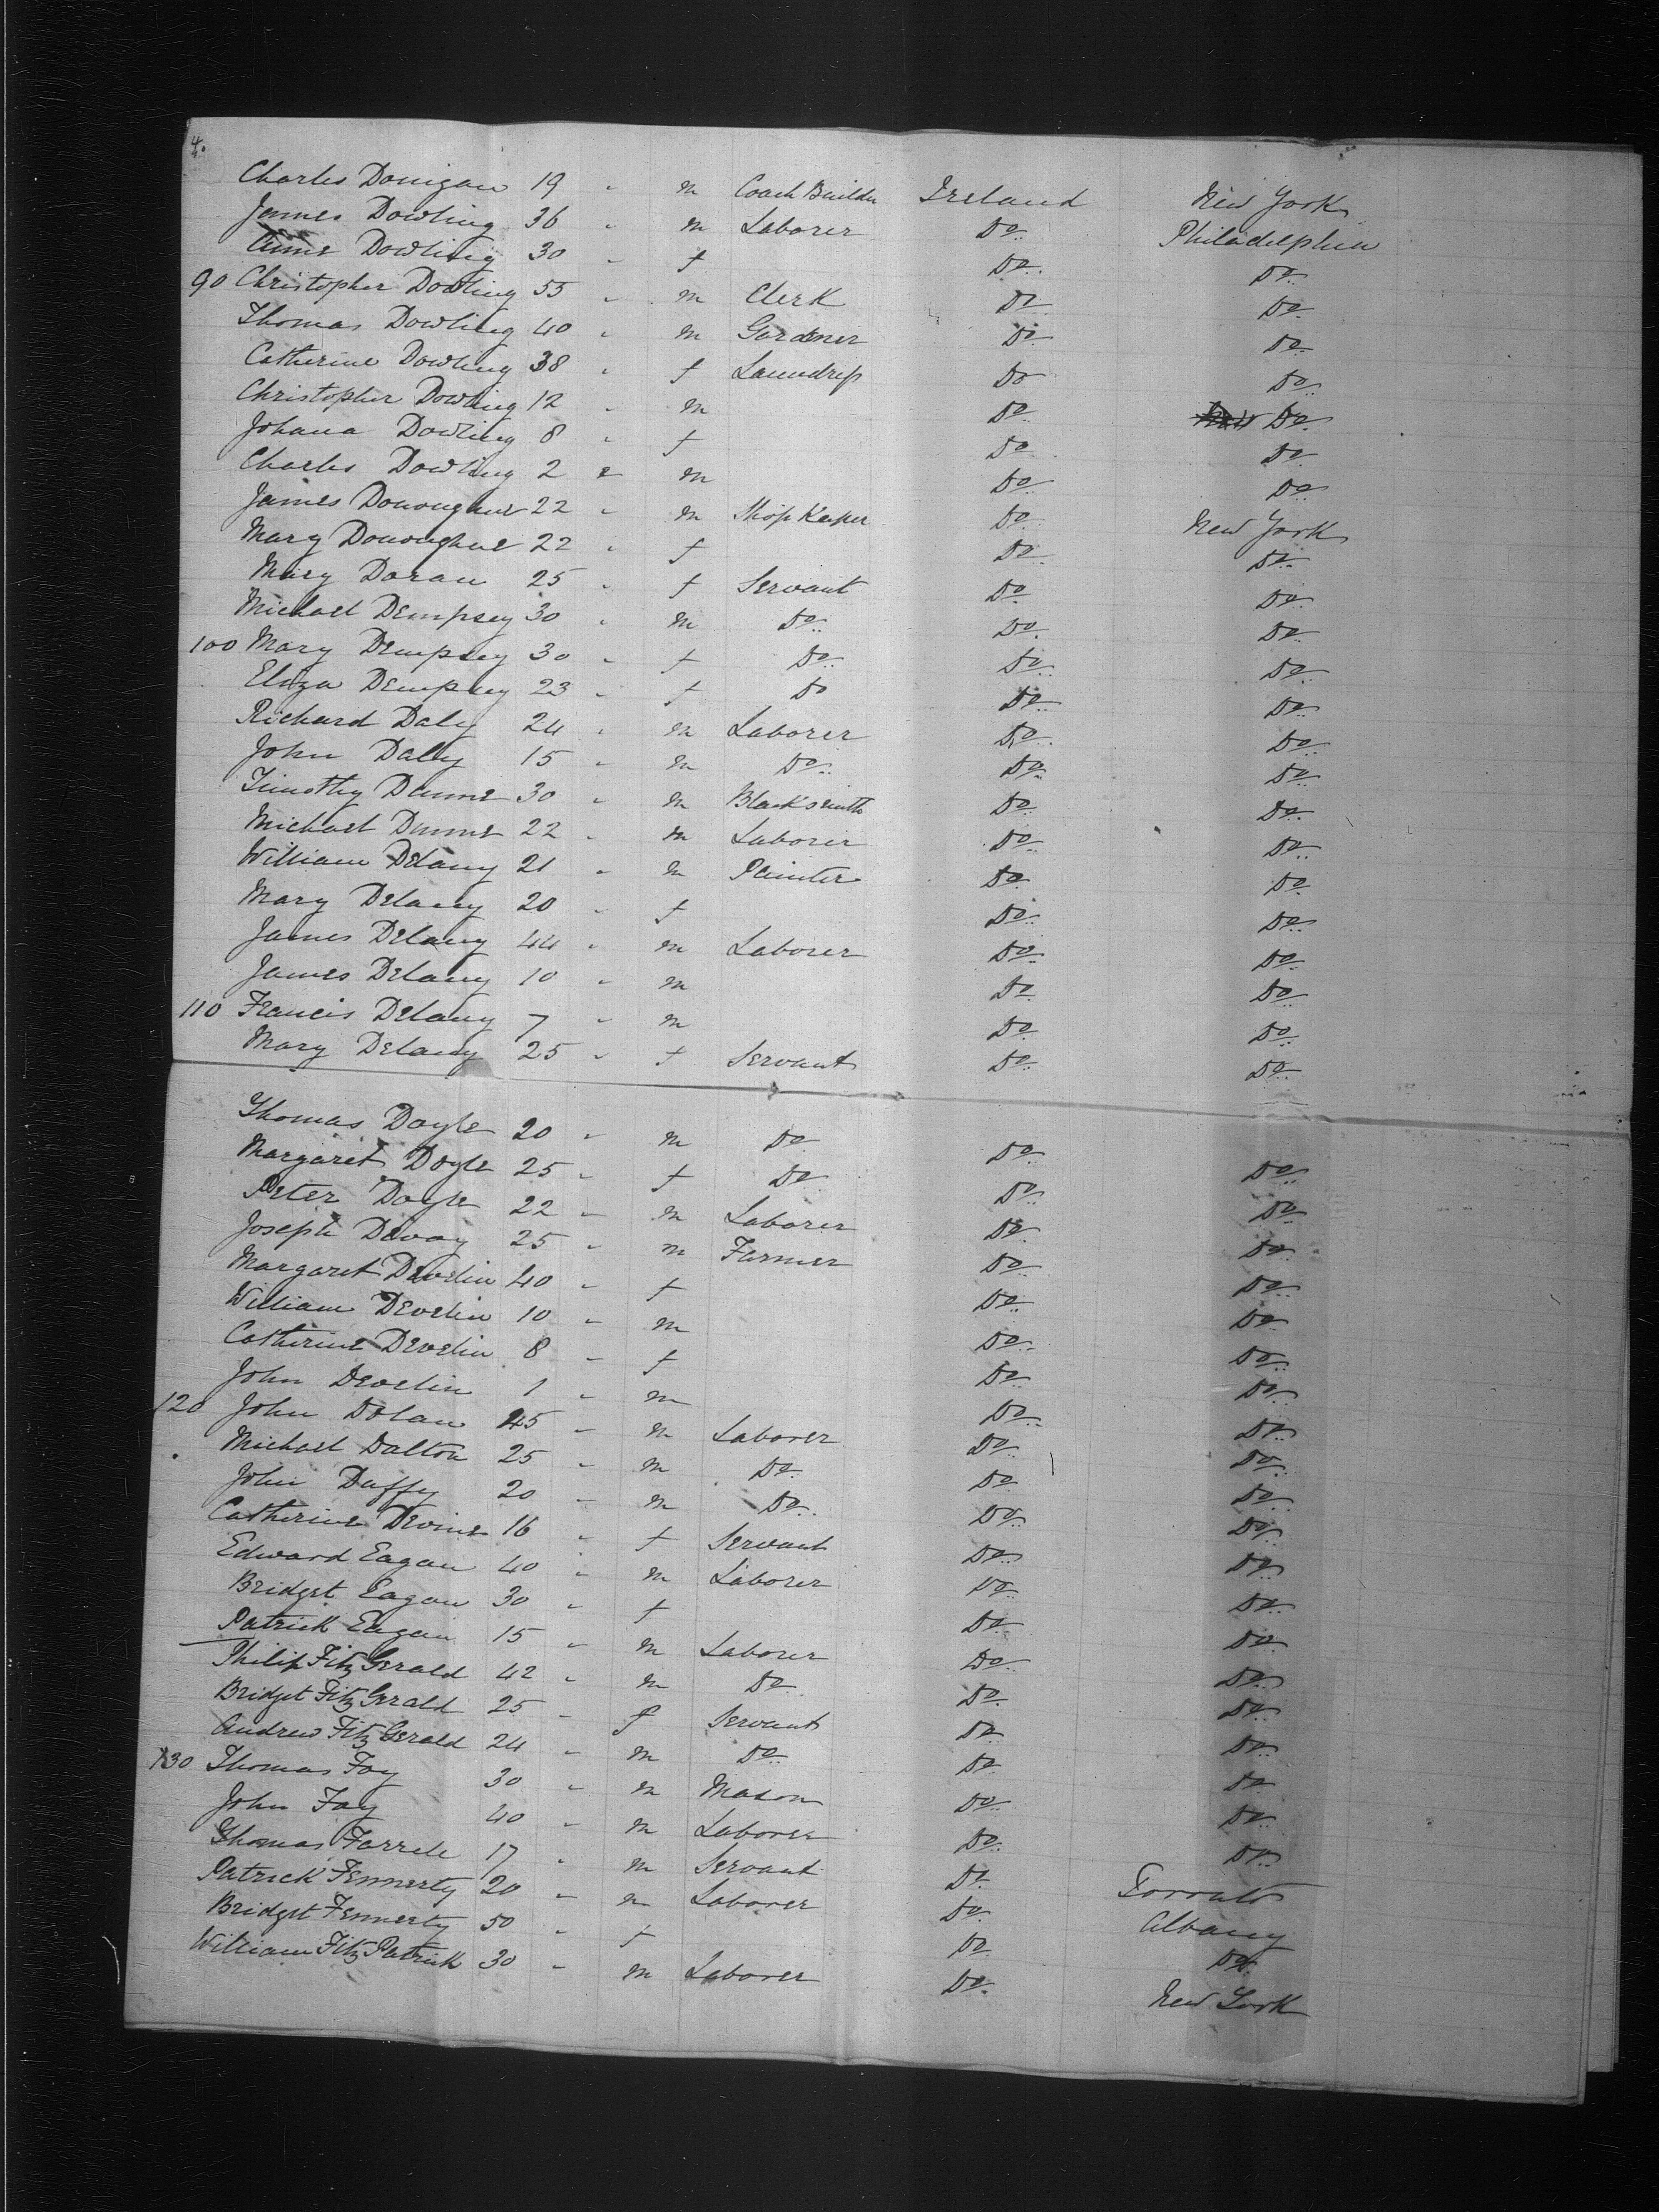 4.
Charles Donigan 19 " m Coach Builder Ireland New York
James Dowling 36 " m Laborer Do. Philadelphia
Anne Dowling 30 " f Do. Do.
90 Christopher Dowling 55 " m Clerk Do. Do.
Thomas Dowling 40 " m Gardner Do. Do.
Catherine Dowling 38 " f Laundress Do Do.
Christopher Dowling 12 " m Do. Do.
Johana Dowling 8 " f Do. Do.
Charles Dowling 2 " m Do. Do.
James Donoughue 22 " m Shop Keeper Do. New York
Mary Donoughue 22 " f Do. Do.
Mary Doran 25 " f Servant Do. Do.
Michael Dempsey 30 " m Do. Do. Do.
100 Mary Dempsey 30 " f Do. Do. Do.
Eliza Dempsey 23 " f Do Do. Do.
Richard Daly 24 " m Laborer Do. Do.
John Daly 15 " m Do. Do. Do.
Timothy Dunne 30 " m Blacksmith Do. Do.
Michael Dunne 22 " m Laborer Do. Do.
William Delany 21 " m Painter Do. Do.
Mary Delany 20 " f Do. Do.
James Delany 44 " m Laborer Do. Do.
James Delany 10 " m Do. Do.
110 Francis Delany 7 " m Do. Do.
Mary Delany 25 " f Servant Do. Do.
Thomas Doyle 20 " m Do. Do. Do.
Margaret Doyle 25 " f Do. Do. Do.
Peter Doyle 22 " m Laborer Do. Do.
Joseph Devoy 25 " m Farmer Do. Do.
Margaret Develin 40 " f Do. Do.
William Develin 10 " m Do. Do.
Catherine Develin 8 " f Do. Do.
John Develin 1 " m Do. Do.
120 John Dolan 45 " m Laborer Do. Do.
Michael Dalton 25 " m Do. Do. Do.
John Duffy 20 " m Do. Do. Do.
Catherine Devine 16 " f Servant Do. Do.
Edward Eagan 40 " m Laborer Do. Do.
Bridget Eagan 30 " f Do. Do.
Patrick Eagan 15 " m Laborer Do. Do.
Philip FitzGerald 42 " m Do. Do. Do.
Bridget FitzGerald 25 " f Servant Do. Do.
Andrew FitzGerald 24 " m Do. Do. Do.
130 Thomas Foy 30 " m Mason Do. Do.
John Fay 40 " m Laborer Do. Do.
Thomas Farrell 17 " m Servant Do.
Patrick Fennerty 20 " m Laborer Do. Albany
Bridget Fennerty 50 " f Do. Do.
William FitzPatrick 30 " m Laborer Do. New York